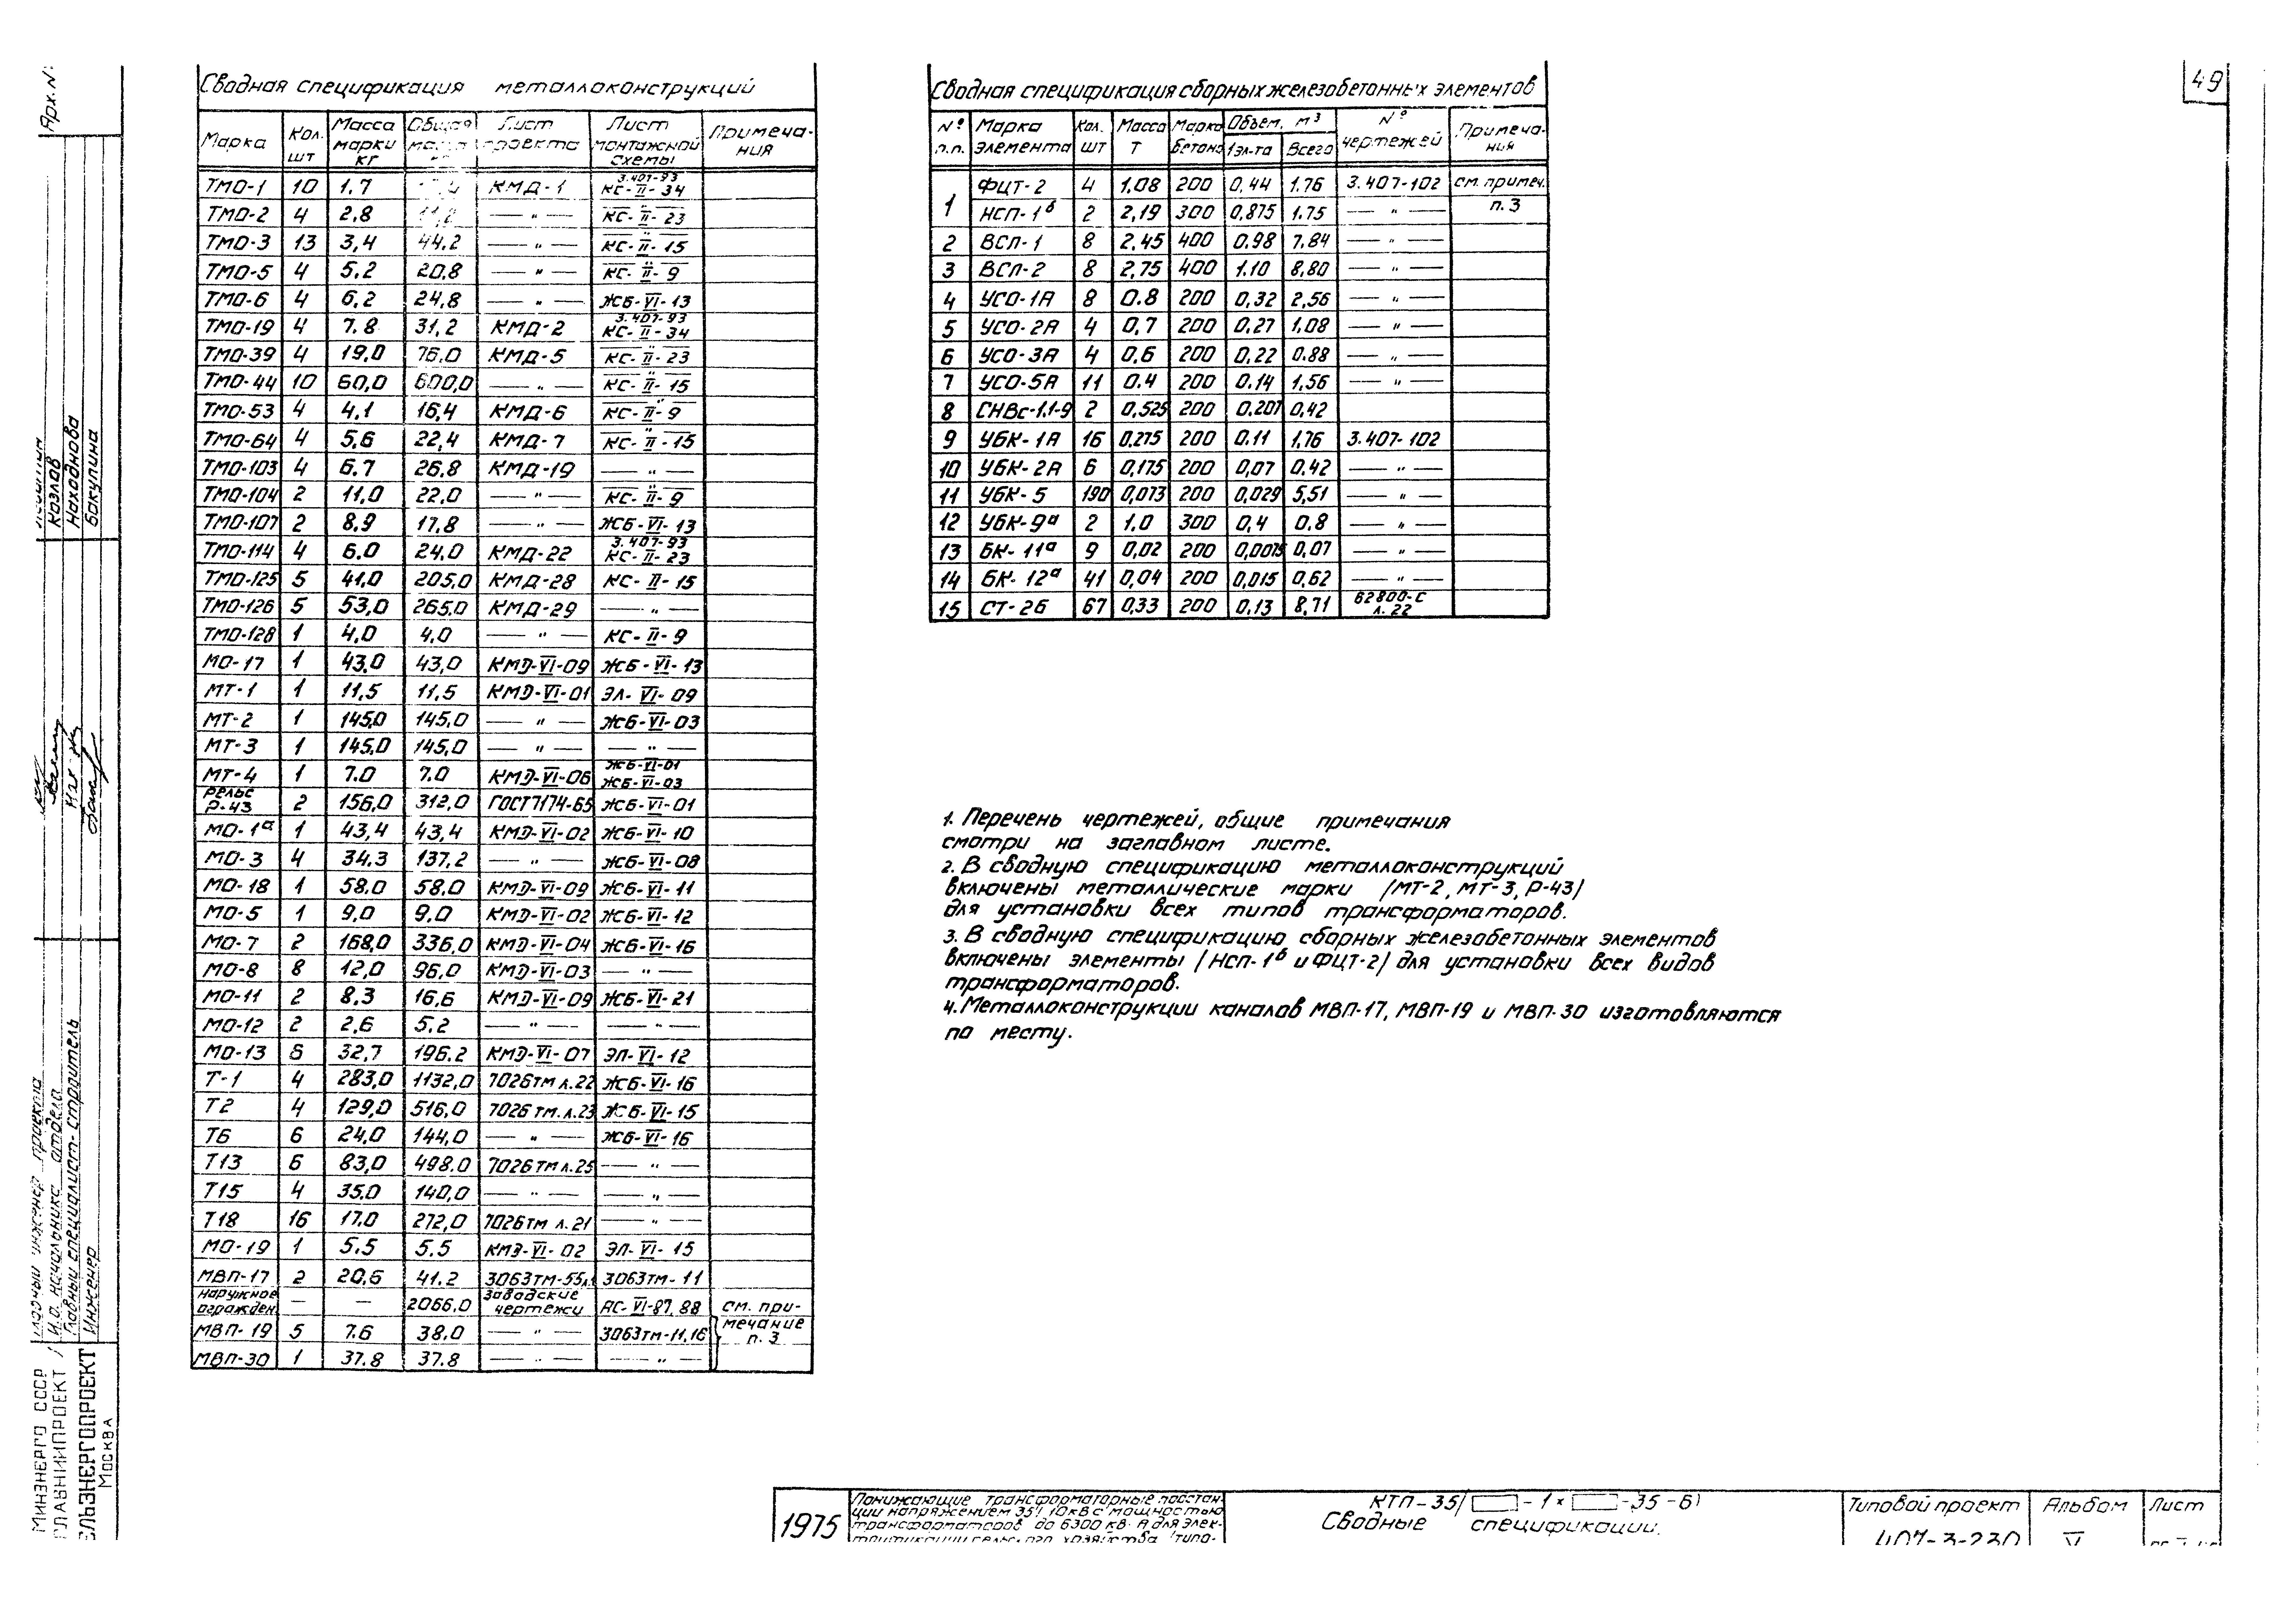 49
Арх. №
Сводная спецификация металлоконструкций
Марка | Кол. шт | Масса марки кг | Общая | Лист проекта | Лист монтажной схемы | Примечания
ТМО-1 | 10 | 1.7 | | КМД-1 | 3.407-93 КС-II-34
ТМО-2 | 4 | 2.8 | 11.2 | — " — | КС-II-23
ТМО-3 | 13 | 3,4 | 44.2 | — " — | КС-II-15
ТМО-5 | 4 | 5.2 | 20.8 | — " — | КС-II-9
ТМО-6 | 4 | 6,2 | 24,8 | — " — | ЖБ-VI-13
ТМО-19 | 4 | 7.8 | 31,2 | КМД-2 | 3.407-93 КС-II-34
ТМО-39 | 4 | 19,0 | 76,0 | КМД-5 | КС-II-23
ТМО-44 | 10 | 60,0 | 600,0 | — " — | КС-II-15
ТМО-53 | 4 | 4,1 | 16,4 | КМД-6 | КС-II-9
ТМО-64 | 4 | 5,6 | 22,4 | КМД-7 | КС-II-15
ТМО-103 | 4 | 6.7 | 26.8 | КМД-19 | — " —
ТМО-104 | 2 | 11,0 | 22.0 | — " — | КС-II-9
ТМО-107 | 2 | 8.9 | 17.8 | — " — | ЖБ-VI-13
ТМО-114 | 4 | 6.0 | 24,0 | КМД-22 | 3.407-93 КС-II-23
ТМО-125 | 5 | 41,0 | 205,0 | КМД-28 | КС-II-15
ТМО-126 | 5 | 53,0 | 265,0 | КМД-29 | — " —
ТМО-128 | 1 | 4,0 | 4.0 | — " — | КС-II-9
МО-17 | 1 | 43,0 | 43,0 | КМД-VI-09 | ЖБ-VI-13
МТ-1 | 1 | 11,5 | 11,5 | КМД-VI-01 | ЭЛ-VI-09
МТ-2 | 1 | 145,0 | 145,0 | — " — | ЖБ-VI-03
МТ-3 | 1 | 145,0 | 145,0 | — " — | — " —
МТ-4 | 1 | 7.0 | 7.0 | КМД-VI-06 | ЖБ-VI-01 ЖБ-VI-03
рельс Р-43 | 2 | 156,0 | 312,0 | ГОСТ7174-65 | ЖБ-VI-01
МО-1а | 1 | 43,4 | 43,4 | КМД-VI-02 | ЖБ-VI-10
МО-3 | 4 | 34.3 | 137.2 | — " — | ЖБ-VI-08
МО-18 | 1 | 58.0 | 58.0 | КМД-VI-09 | ЖБ-VI-11
МО-5 | 1 | 9,0 | 9,0 | КМД-VI-02 | ЖБ-VI-12
МО-7 | 2 | 168,0 | 336,0 | КМД-VI-04 | ЖБ-VI-16
МО-8 | 8 | 12,0 | 96,0 | КМД-VI-03 | — " —
МО-11 | 2 | 8.3 | 16,6 | КМД-VI-09 | ЖБ-VI-21
МО-12 | 2 | 2,6 | 5.2 | — " — | — " —
МО-13 | 6 | 32,7 | 196.2 | КМД-VI-07 | ЭЛ-VI-12
Т-1 | 4 | 283,0 | 1132,0 | 7026тм л.22 | ЖБ-VI-16
Т2 | 4 | 129,0 | 516,0 | 7026 тм.л.23 | ЖБ-VI-15
Т6 | 6 | 24,0 | 144,0 | — " — | ЖБ-VI-16
Т13 | 6 | 83,0 | 498.0 | 7026 тм л.25 | — " —
Т15 | 4 | 35.0 | 140,0 | — " — | — " —
Т18 | 16 | 17.0 | 272,0 | 7026тм л.21 | — " —
МО-19 | 1 | 5.5 | 5.5 | КМД-VI-02 | ЭЛ-VI-15
МВП-17 | 2 | 20,6 | 41.2 | 3063тм-55л1 | 3063тм-11
наружное огражден. | — | — | 2066,0 | заводские чертежи | АС-VI-87,88 | см. при-
МВП-19 | 5 | 7.6 | 38.0 | — " — | 3063тм-11,16 | мечание п. 3
МВП-30 | 1 | 37.8 | 37.8 | — " — | — " —
Сводная спецификация сборных железобетонных элементов
№ п.п. | Марка элемента | Кол. шт | Масса Т | Марка бетона | Объем, м³ 1эл-та | Всего | № чертежей | Примечания
1 | ФЦТ-2 | 4 | 1,08 | 200 | 0,44 | 1.76 | 3.407-102 | см. примеч.
НСП-1б | 2 | 2,19 | 300 | 0,875 | 1.75 | — " — | п. 3
2 | ВСЛ-1 | 8 | 2,45 | 400 | 0.98 | 7.84 | — " —
3 | ВСЛ-2 | 8 | 2,75 | 400 | 1.10 | 8,80 | — " —
4 | УСО-1А | 8 | 0.8 | 200 | 0,32 | 2,56 | — " —
5 | УСО-2А | 4 | 0,7 | 200 | 0.27 | 1,08 | — " —
6 | УСО-3А | 4 | 0,6 | 200 | 0,22 | 0.88 | — " —
7 | УСО-5А | 11 | 0.4 | 200 | 0.14 | 1,56 | — " —
8 | СНВс-1.1-9 | 2 | 0,525 | 200 | 0.207 | 0,42
9 | УБК-1А | 16 | 0,275 | 200 | 0.11 | 1,76 | 3.407-102
10 | УБК-2А | 6 | 0,175 | 200 | 0,07 | 0.42 | — " —
11 | УБК-5 | 190 | 0,073 | 200 | 0,029 | 5,51 | — " —
12 | УБК-9а | 2 | 1.0 | 300 | 0,4 | 0.8 | — " —
13 | БК-11а | 9 | 0,02 | 200 | 0,0075 | 0,07 | — " —
14 | БК-12а | 41 | 0,04 | 200 | 0,015 | 0,62 | — " —
15 | СТ-26 | 67 | 0,33 | 200 | 0.13 | 8,71 | 62800-С л. 22
1. Перечень чертежей, общие примечания
смотри на заглавном листе.
2. В сводную спецификацию металлоконструкций
включены металлические марки /МТ-2, МТ-3, Р-43/
для установки всех типов трансформаторов.
3. В сводную спецификацию сборных железобетонных элементов
включены элементы /НСП-1б и ФЦТ-2/ для установки всех видов
трансформаторов.
4. Металлоконструкции каналов МВП-17, МВП-19 и МВП-30 изготовляются
по месту.
Козлов
Находнова
Бакулина
Главный инженер проекта
И.о. начальника отдела
Главный специалист-строитель
Инженер
Минэнерго СССР
ГЛАВНИИПРОЕКТ
СЕЛЬЭНЕРГОПРОЕКТ
Москва
1975
Понижающие трансформаторные подстан-
ции напряжением 35/10кВ с мощностью
трансформаторов до 6300 кВ·А для элек-
трификации сельского хозяйства /типо-
КТП-35/ -1× -35-6)
Сводные спецификации.
Типовой проект
407-3-230
Альбом
VI
Лист